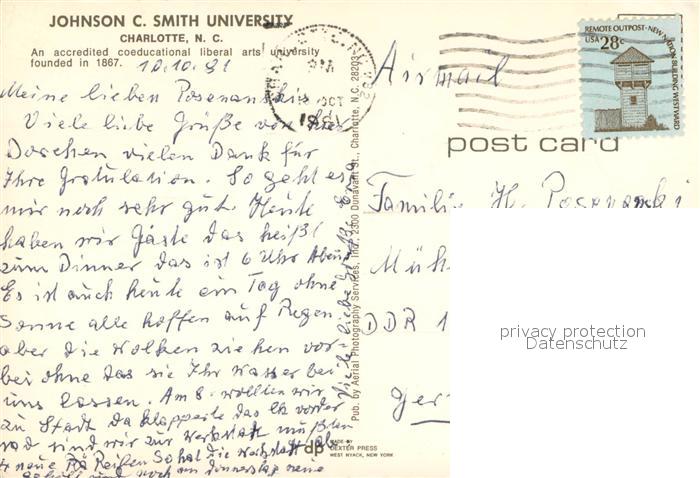 JOHNSON C. SMITH UNIVERSITY
CHARLOTTE, N. C.
An accredited coeducational liberal arts university
founded in 1867.
10.10.81
Meine lieben Posenanskis
Viele liebe Grüße von hier
vielen Dank für
Ihre Gratulation. So geht es
mir noch sehr gut. Heute
haben wir Gäste das heißt
zum Dinner das ist 6 Uhr Abend
Es ist auch heute ein Tag ohne
Sonne alle hoffen auf Regen.
aber die Wolken ziehen vor-
bei ohne das sie Ihr Wasser bei
uns lassen. Am 8. wollten wir
zu Stadt da klapperte das vorder
rad sind wir zur Werkstatt mußten
4 neue Reifen So hat die Werkstatt
noch am Donnerstag neue
Viele liebe Grüße Erna
Pub. by Aerial Photography Services, Inc., 2300 Dunavant St., Charlotte, N.C. 28203
dp
MADE BY
DEXTER PRESS
WEST NYACK, NEW YORK
OCT
1981
REMOTE OUTPOST·NEW NATION BUILDING WESTWARD
USA 28c
Airmail
post card
Familie H. Posenanski
Müh
DDR 1
Ger
privacy protection
Datenschutz